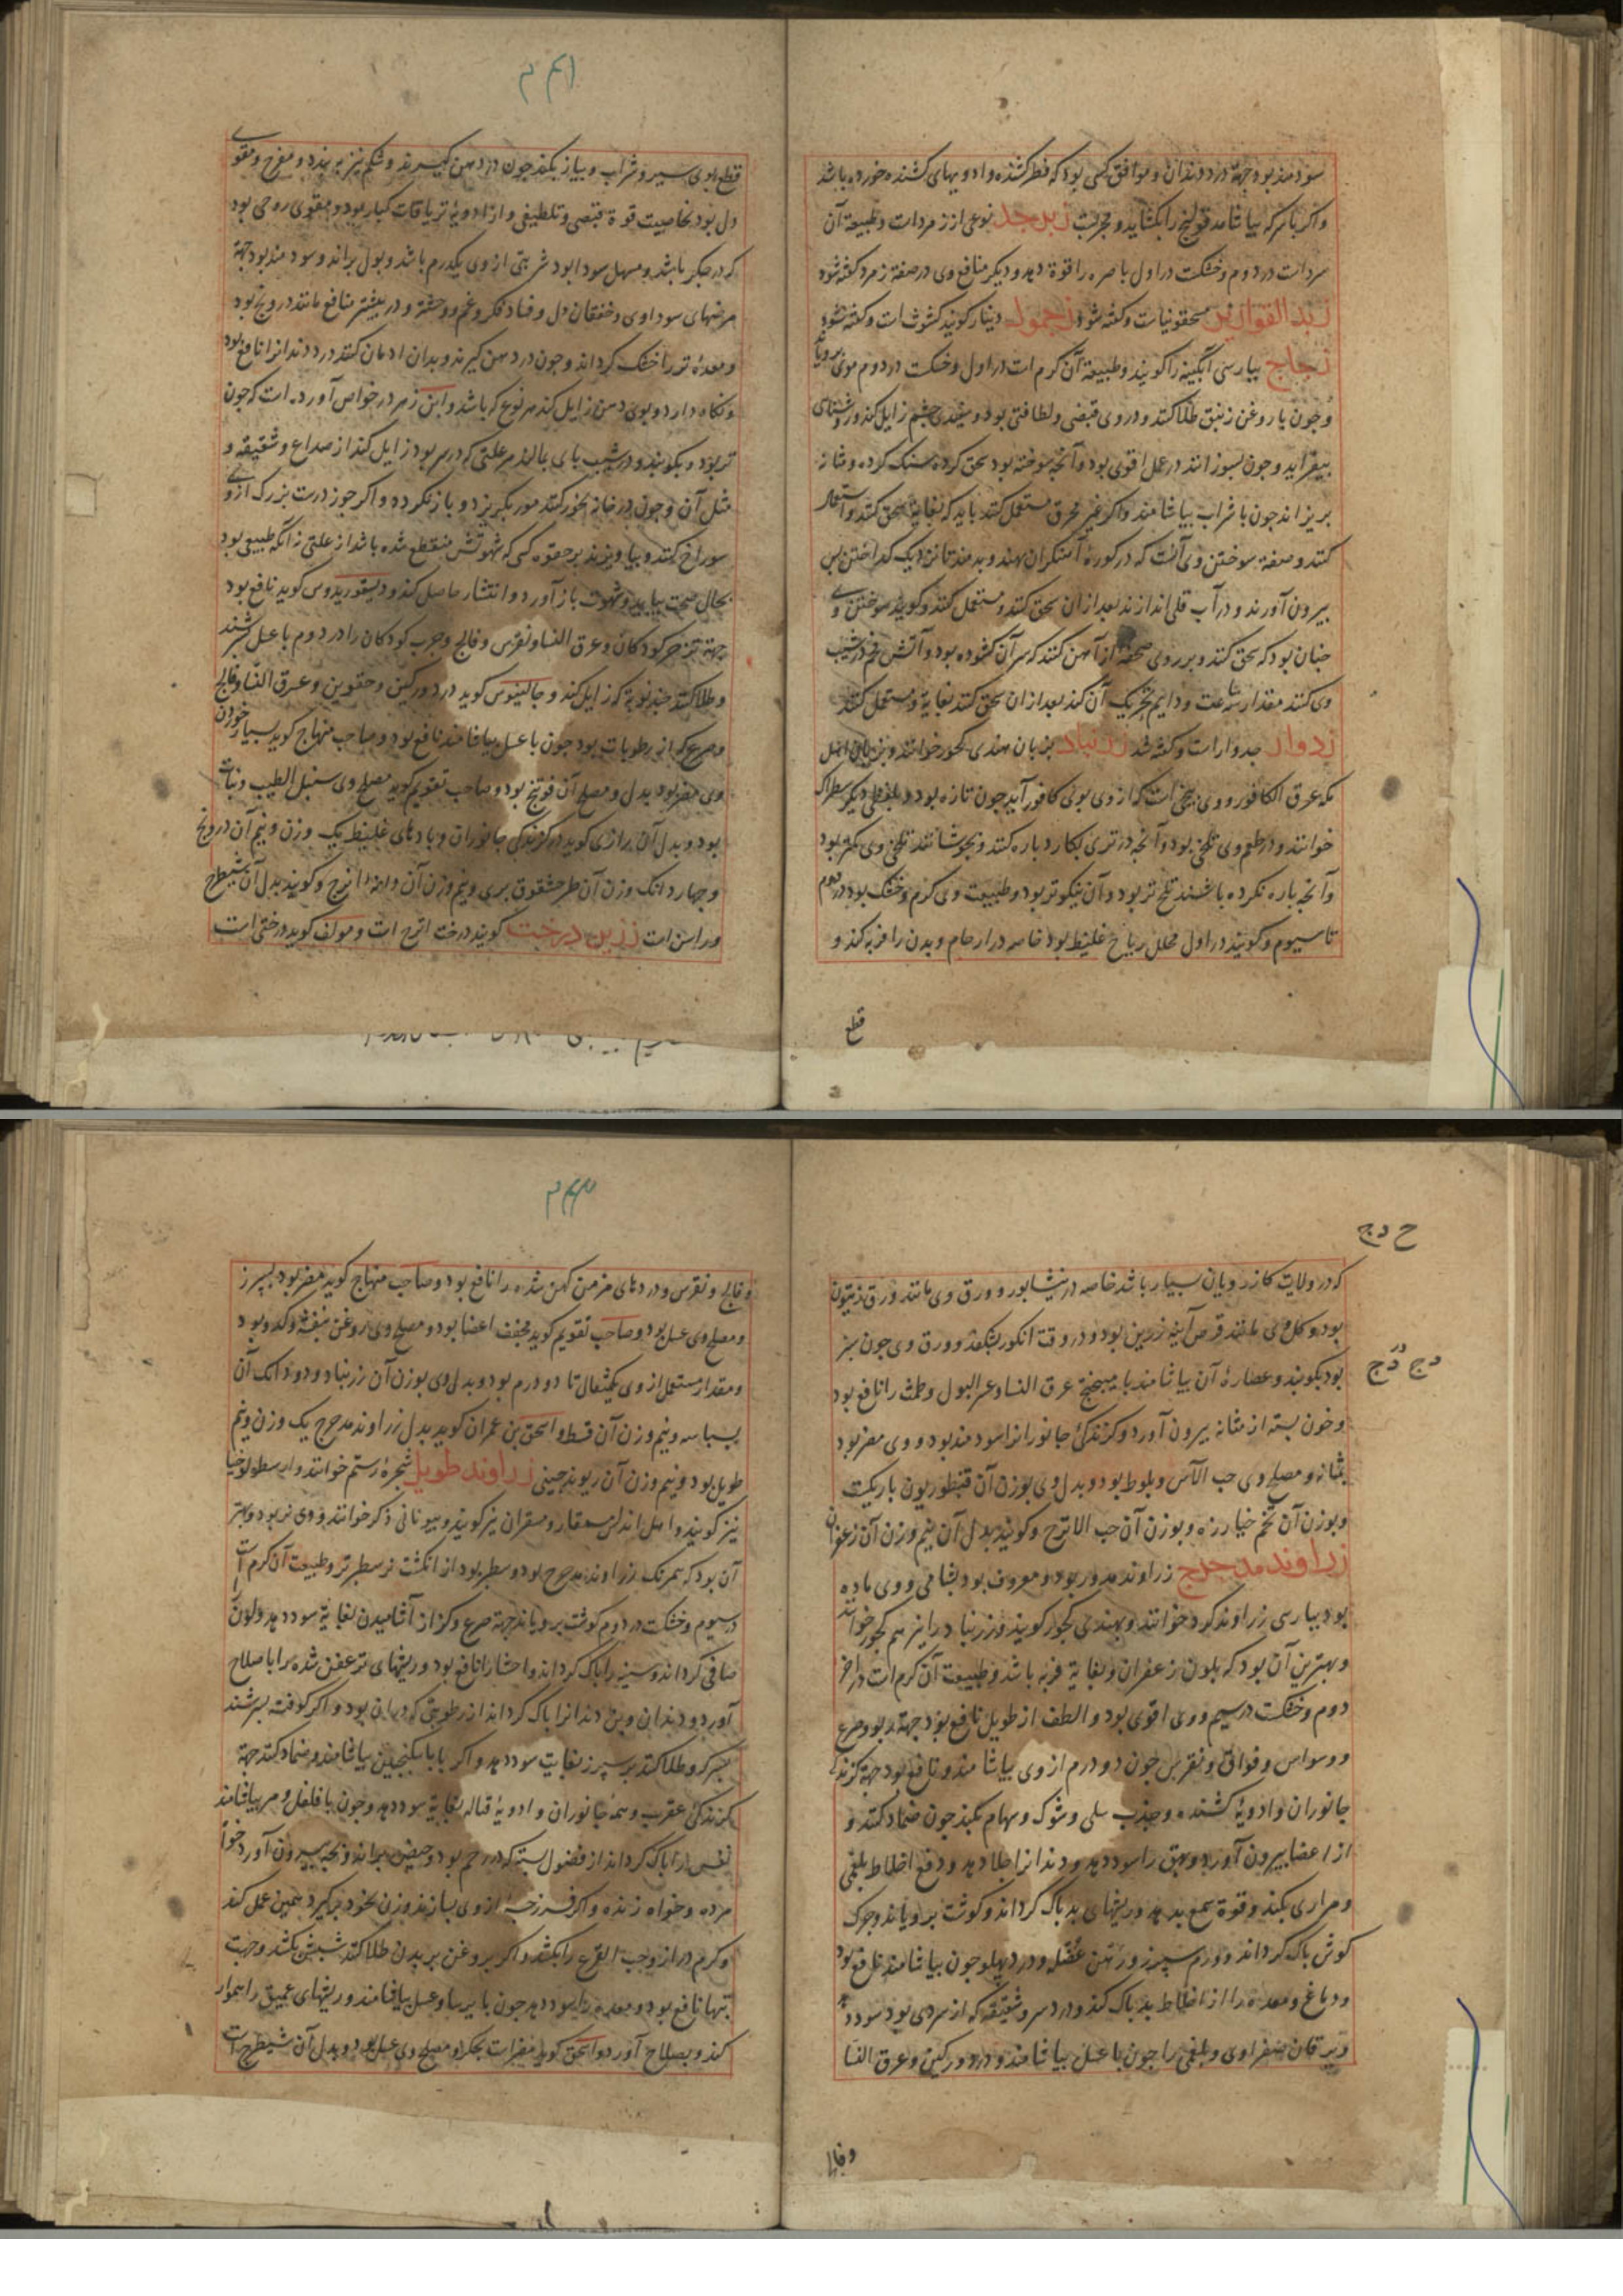 سودمند بود جهة درد دندان و موافق کسی بود که فطر کشنده و ادویهای کشنده خورده باشد
و اکر با سرکه بیاشامد قولنج را بکشاید و مجربست زبرجد نوعی از زمردات و طبیعة آن
سردات در دوم و خشکت در اول باصره را قوة دهد و دیکر منافع وی در صفة زمرد کفته شود
زبد القواریر مسحقونیات و کفته شود زحمول دینار کویند کشوث است و کفته شود
زجاج بپارسی آبکینه را کویند و طبیعة آن کرم است در اول و خشکت در دوم موی برویاند
و چون با روغن زنبق طلا کنند و در وی قبضی و لطافتی بود و سفیدی چشم زایل کند و روشنای
بیفزاید و چون بسوزانند در عمل اقوی بود و آنچه سوخته بود سحق کرده سنک کرده و مثانه
بریزاند چون با شراب بیاشامند و اکر غیر محرق مستعمل کنند باید که بغایة سحق کنند و استعمال
کنند و صفة سوختن وی آنست که در کورهٔ آهنکران نهند و بدمند تا نزدیک کداختن پس
بیرون آورند و در آب قلی اندازند بعد از آن سحق کنند و مستعمل کنند و کویند سوختن وی
چنان بود که سحق کنند و بر روی صحفه از آهن کنند که سر آن کشوده بود و آتش نرم در شیب
وی کنند مقدار ساعت و دایم تحریک آن کنند بعد از ان سحق کنند بغایة و مستعمل کنند
زدوار جدوارات و کفته شد زرنباد بزبان هندی کچور خوانند و بزبان اهل
مکه عرق الکافور و وی بیخی است که از وی بوی کافور آید چون تازه بود و بلفظی دیکر سطراک
خوانند و در طعم وی تلخی بود و آنچه در تری بکارد پاره کنند و بجوشانند تلخی وی کمتر بود
و آنچه پاره نکرده باشند تلخ تر بود و آن نیکوتر بود و طبیعت وی کرم و خشک بود در دوم
تا سیوم و کویند در اول محلل ریاح غلیظ بود خاصه در ارحام و بدن را فربه کند و
قطع
قطع بوی سیر و شراب و پیاز بکند چون در دهن کیرند و شکم نیز ببندد و مفرح و مقوی
دل بود بخاصیت قوة قبضی و تلطیفی و از ادویة تریاقات کبار بود و مقوی روحی بود
که در جکر باشد و مسهل سودا بود شربتی از وی یکدرم باشد و بول براند و سودمند بود جهة
مرضهای سوداوی و خفقان دل و فساد فکر و غم و وحشة و در بیشتر منافع مانند درونج بود
و معدهٔ تر را خشک کرداند و چون در دهن کیرند و بدان ادمان کنند درد دندانرا نافع بود
و نکاه دارد و بوی دهن زایل کند هر نوع که باشد و ابن زهر در خواص آورده است که چون
تر بود و بکوبند و در شیب پای بمالند هر علتی که در سر بود زایل کند از صداع و شقیقه و
مثل آن و چون در خانه بخور کنند مور بکریزد و باز نکردد و اکر چوز درست بزرک از وی
سوراخ کنند و بیاویزند بر حقوه کسی که شهوتش منقطع شده باشد از علتی نه آنکه طبیعی بود
بحال صحت بیاید و شهوت باز آورد و انتشار حاصل کند و دیسقوریدوس کوید نافع بود
جهة تزحر کودکان و عرق النسا و نقرس و فالج و جرب کودکان را در دوم با عسل بسرشند
و طلا کنند چند نوبة که زایل کند و جالینوس کوید درد ورکین و حقوین و عرق النسا و فالج
و صرع که از رطوبات بود چون با عسل بیاشامند نافع بود و صاحب منهاج کوید بسیار خوردن
وی مضر بود بدل و مصلح آن فوتنج بود و صاحب تقویم کوید مصلح وی سنبل الطیب و نبات
بود و بدل آن رازی کوید در کزندکی جانوران و بادهای غلیظ یک وزن و نیم آن درونج
و چهار دانک وزن آن طرحشقوق بری و نیم وزن آن دانهٔ اترج و کویند بدل آن شیطرج
و راسن است زرین درخت کویند درخت اترج است و مولف کوید درختی است
ح د ج
د ج د ج
که در ولایت کازرویان بسیار باشد خاصه در نیشابور و ورق وی مانند ورق زیتون
بود و کل وی مانند قرص آینه زرین بود و در وقت انکور بشکفد و ورق وی چون سبز
بود بکوبند و عصارهٔ آن بیاشامند با میبختج عرق النسا و عسر البول و طمث را نافع بود
و خون بسته از مثانه بیرون آورد و کزندکی جانورانرا سودمند بود و وی مضر بود
بمثانه و مصلح وی حب الآس و بلوط بود و بدل وی بوزن آن قنطوریون باریکت
و بوزن آن تخم خیار زه و بوزن آن حب الاترج و کویند بدل آن نیم وزن آن زعفران
زراوند مدحرج زراوند مدور بود و معروف بود بشامی و وی ماده
بود بپارسی زراوند کرد خوانند و بهندی کچور کویند و زرنباد را نیز هم کچور خوانند
و بهترین آن بود که بلون زعفران و بغایة فربه باشد و طبیعت آن کرم است در آخر
دوم و خشکت در سیم و وی اقوی بود و الطف از طویل نافع بود جهة ربو و صرع
و وسواس و فواق و نقرس چون دو درم از وی بیاشامند و نافع بود جهة کزندکی
جانوران و ادویهٔ کشنده و جذب سلی و شوک و سهام بکند چون ضماد کنند و
از اعضا بیرون آورد و بهق را سود دهد و دندانرا جلا دهد و دفع اخلاط بلغمی
و مراری بکند و قوة سمع بدهد و ریشهای بد پاک کرداند و کوشت برویاند و چرک
کوش پاک کرداند و ورم سپرز و وهن عضل و درد پهلو چون بیاشامند نافع بود
و دماغ و معده را از اخلاط بد پاک کند و درد سر و شقیقه که از سردی بود سود دهد
و یرقان صفراوی و بلغمی را چون با عسل بیاشامند و درد ورکین و عرق النسا
و فالج
و فالج و نقرس و دردهای مزمن کهن شده را نافع بود و صاحب منهاج کوید مضر بود بسپرز
و مصلح وی عسل بود و صاحب تقویم کوید مجفف اعضا بود و مصلح وی روغن بنفشه و کدو بود
و مقدار مستعمل از وی یکمثقال تا دو درم بود و بدل وی بوزن آن زرنباد و دو دانک آن
بسباسه و نیم وزن آن قسط و اسحق بن عمران کوید بدل زراوند مدحرج یک وزن و نیم
طویل بود و نیم وزن آن ریوند چینی زراوند طویل شجرهٔ رستم خوانند و ارسطولوخیا
نیز کویند و اهل اندلس مسمقار و مسمقران نیز کویند و بیونانی ذکر خوانند و وی نر بود و بهتر
آن بود که همرنک زراوند مدحرج بود و سطبر بود از انکشت نر سطبرتر و طبیعت آن کرم است
در سیوم و خشکت در دوم کوشت برویاند جهة صرع و کزاز آشامیدن بغایة سود دهد و لون
صافی کرداند و سینه را پاک کرداند و احشا را نافع بود و ریشهای تر عفن شده را باصلاح
آورد و دندان و بن دندانرا پاک کرداند از رطوبتی که در ان بود و اکر کوفته بسرشند
بسرکه و طلا کنند بر سپرز بغایت سود دهد و اکر با سکنجبین بیاشامند و ضماد کنند جهة
کزندکی عقرب و همه جانوران و ادویهٔ قتاله بغایة سود دهد و چون با فلفل و مر بیاشامند
نفس را پاک کرداند از فضول بسته که در رحم بود و حیض براند و بچه بیرون آورد خواه
مرده و خواه زنده و اکر فرزجهٔ از وی بسازند و زن بخود برکیرد همین عمل کند
و کرم دراز و حب القرع را بکشد و اکر بروغن بر بدن طلا کنند شپش بکشد و جهت
تبها نافع بود و معده را سود دهد چون با ایرسا و عسل بیاشامند و ریشهای عمیق را هموار
کند و بصلاح آورد و اسحق کوید مضرات بجکر و مصلح وی عسل بود و بدل آن شیطرج است